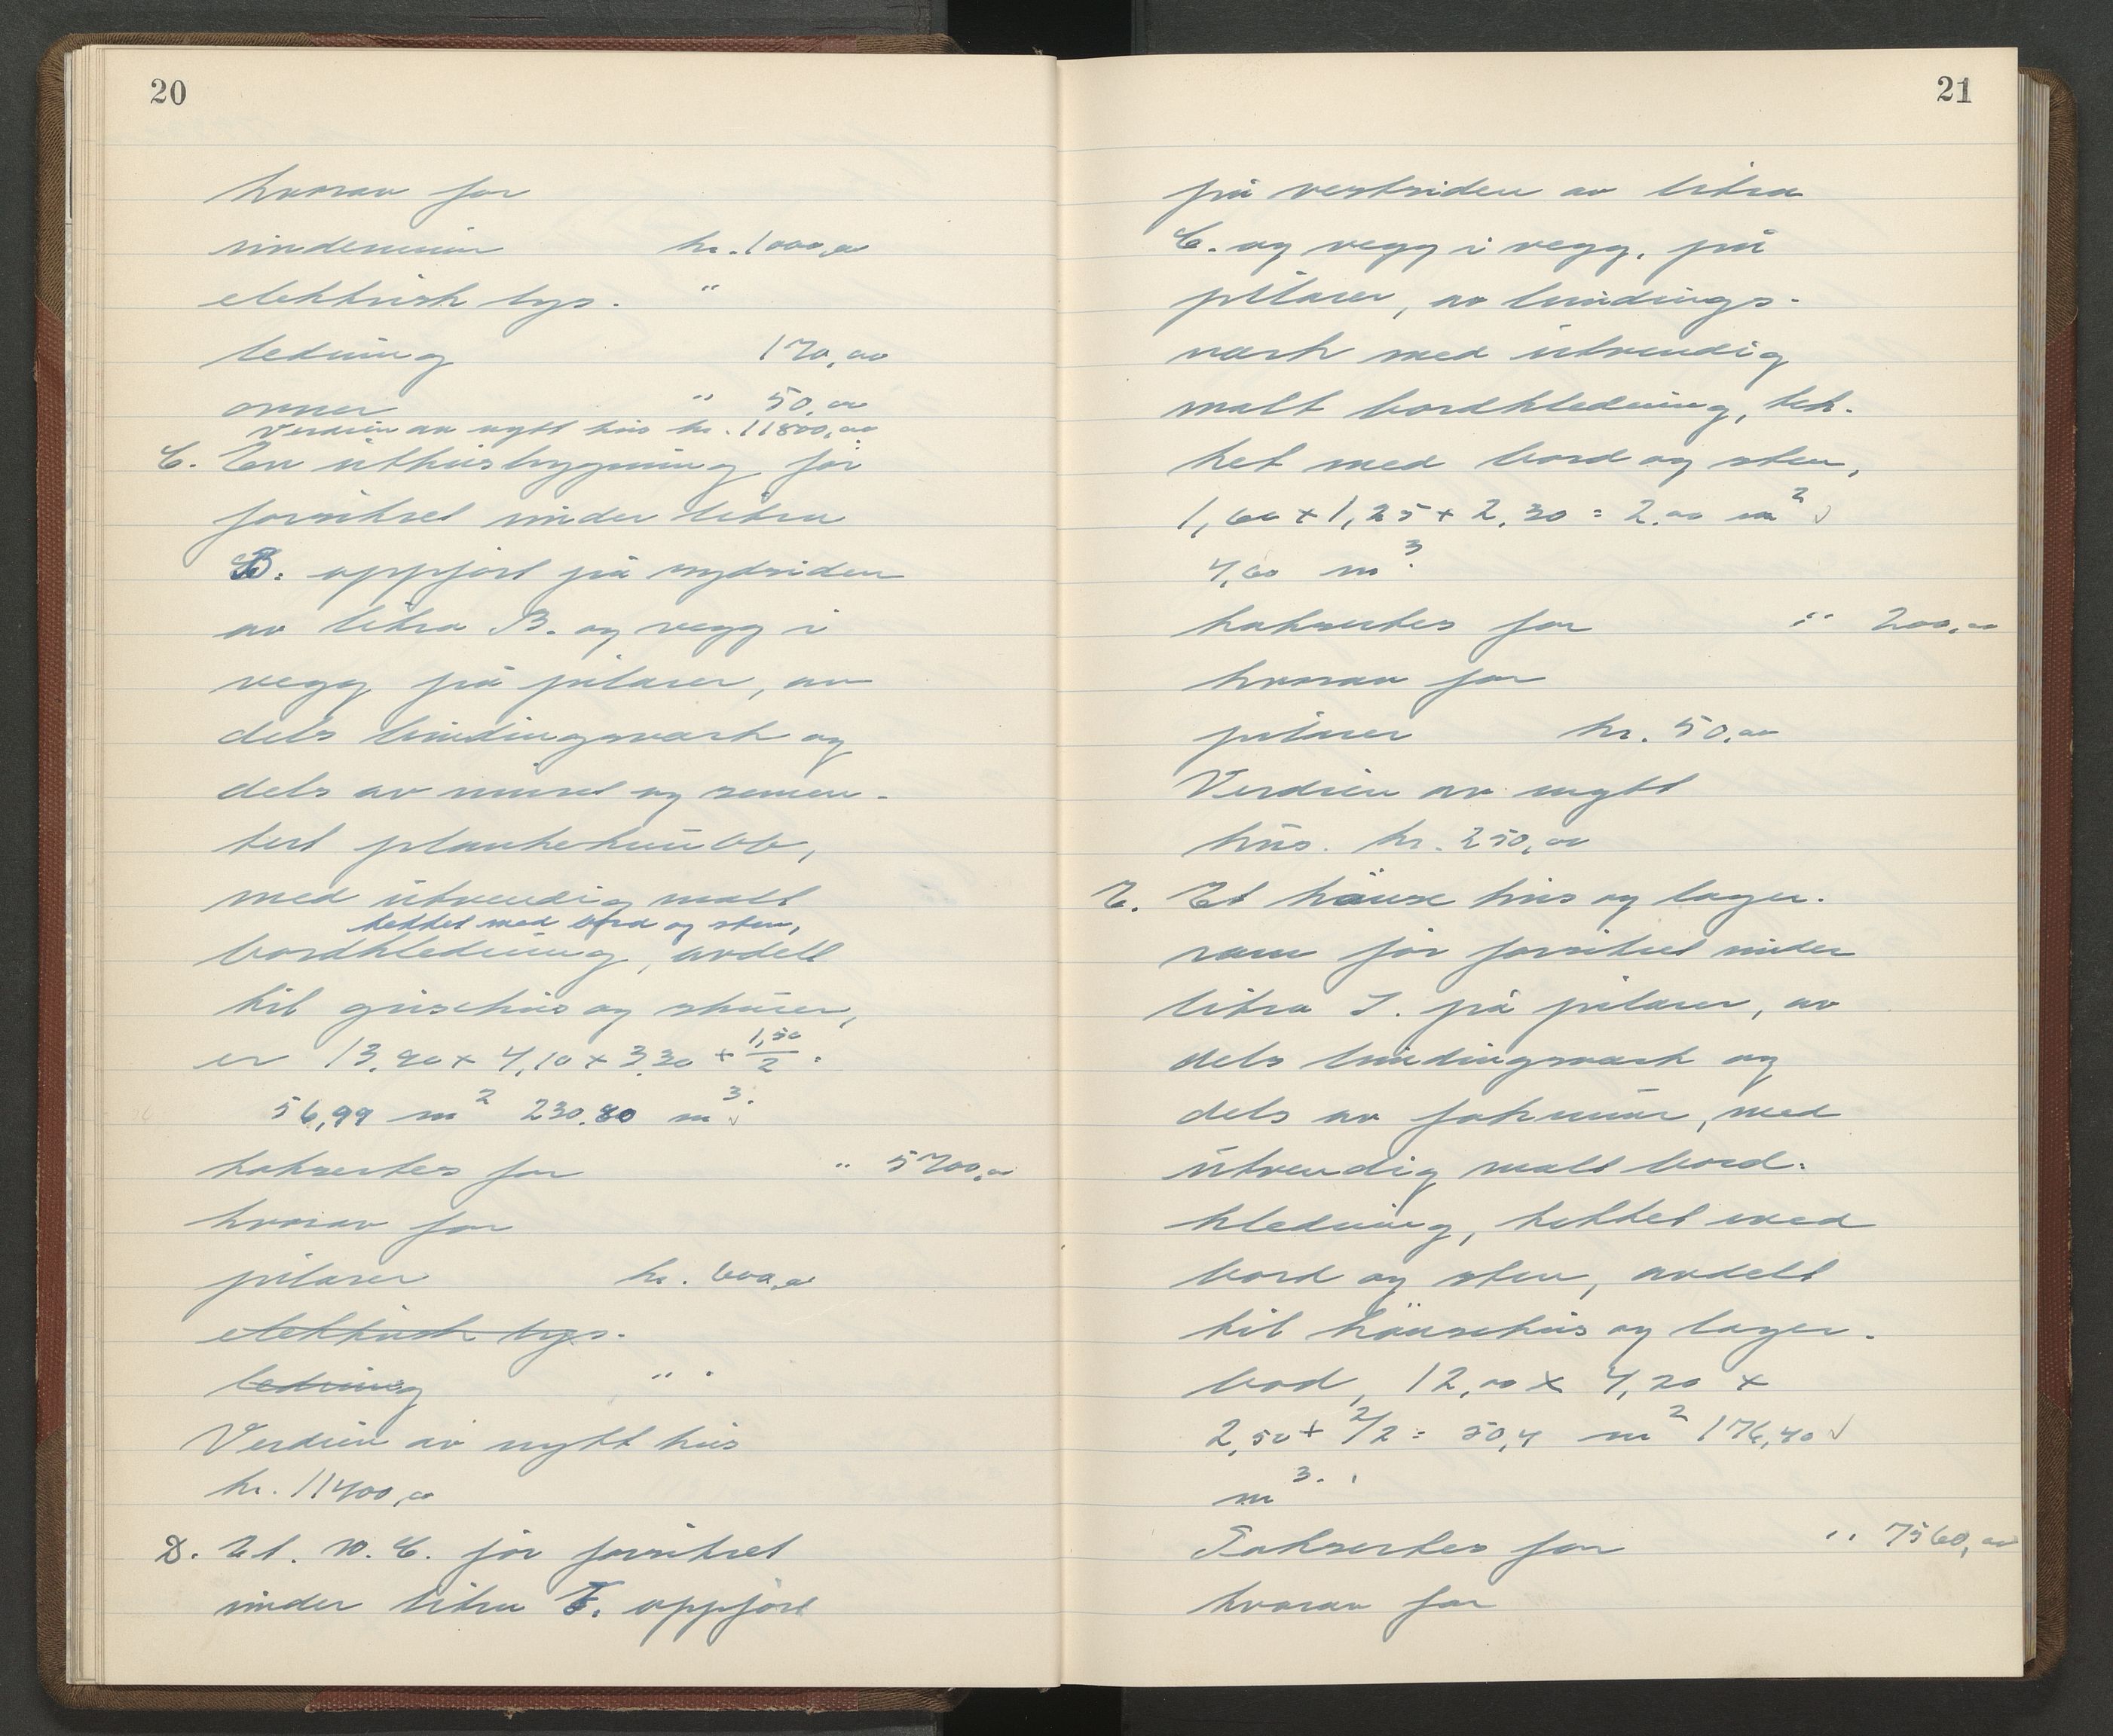 20
hvorav for
undermur kr. 1000,00
elektrisk lys- "
ledning 170,00
ovner " 50,00
Verdien av nytt hus kr. 11800,00
C. En uthusbygning før
forsikret under litra
B. oppført på sydsiden
av litra B. og vegg i
vegg på pilarer, av
dels bindingsverk og
dels av muret og semen-
tert plankekubb,
med utvendig malt
tekket med bord og sten,
bordkledning, avdelt
til grisehus og skurer,
er 13,90 x 4,10 x 3,30 + 1,50/2 =
56,99 m² 230,80 m³.
takseres for " 5700,00
hvorav for
pilarer kr. 600,00
elektrisk lys-
ledning " "
Verdien av nytt hus
kr. 11400,00
D. Et W.C. før forsikret
under litra F. oppført
21
på vestsiden av litra
C. og vegg i vegg, på
pilarer, av bindings-
verk med utvendig
malt bordkledning, tek-
ket med bord og sten,
1,60 x 1,25 x 2,30 = 2,00 m²
4,60 m³.
takseres for " 200,00
hvorav for
pilarer kr. 50,00
Verdien av nytt
hus. kr. 250,00
E. Et hønse hus og lager-
rom før forsikret under
litra I. på pilarer, av
dels bindingsverk og
dels av jordmur, med
utvendig malt bord-
kledning, tekket med
bord og sten, avdelt
til hønsehus og lager-
bod, 12,00 x 4,20 x
2,50 + 2/2 = 50,4 m² 176,40
m³.
Takseres for " 7560,00
hvorav for